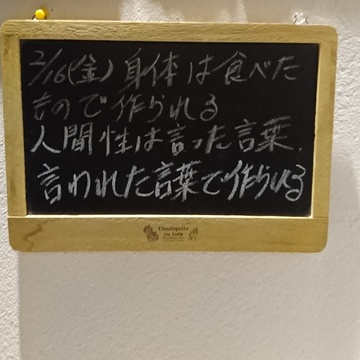 2/16(金) 身体は食べた
もので作られる
人間性は言った言葉.
言われた言葉で作られる